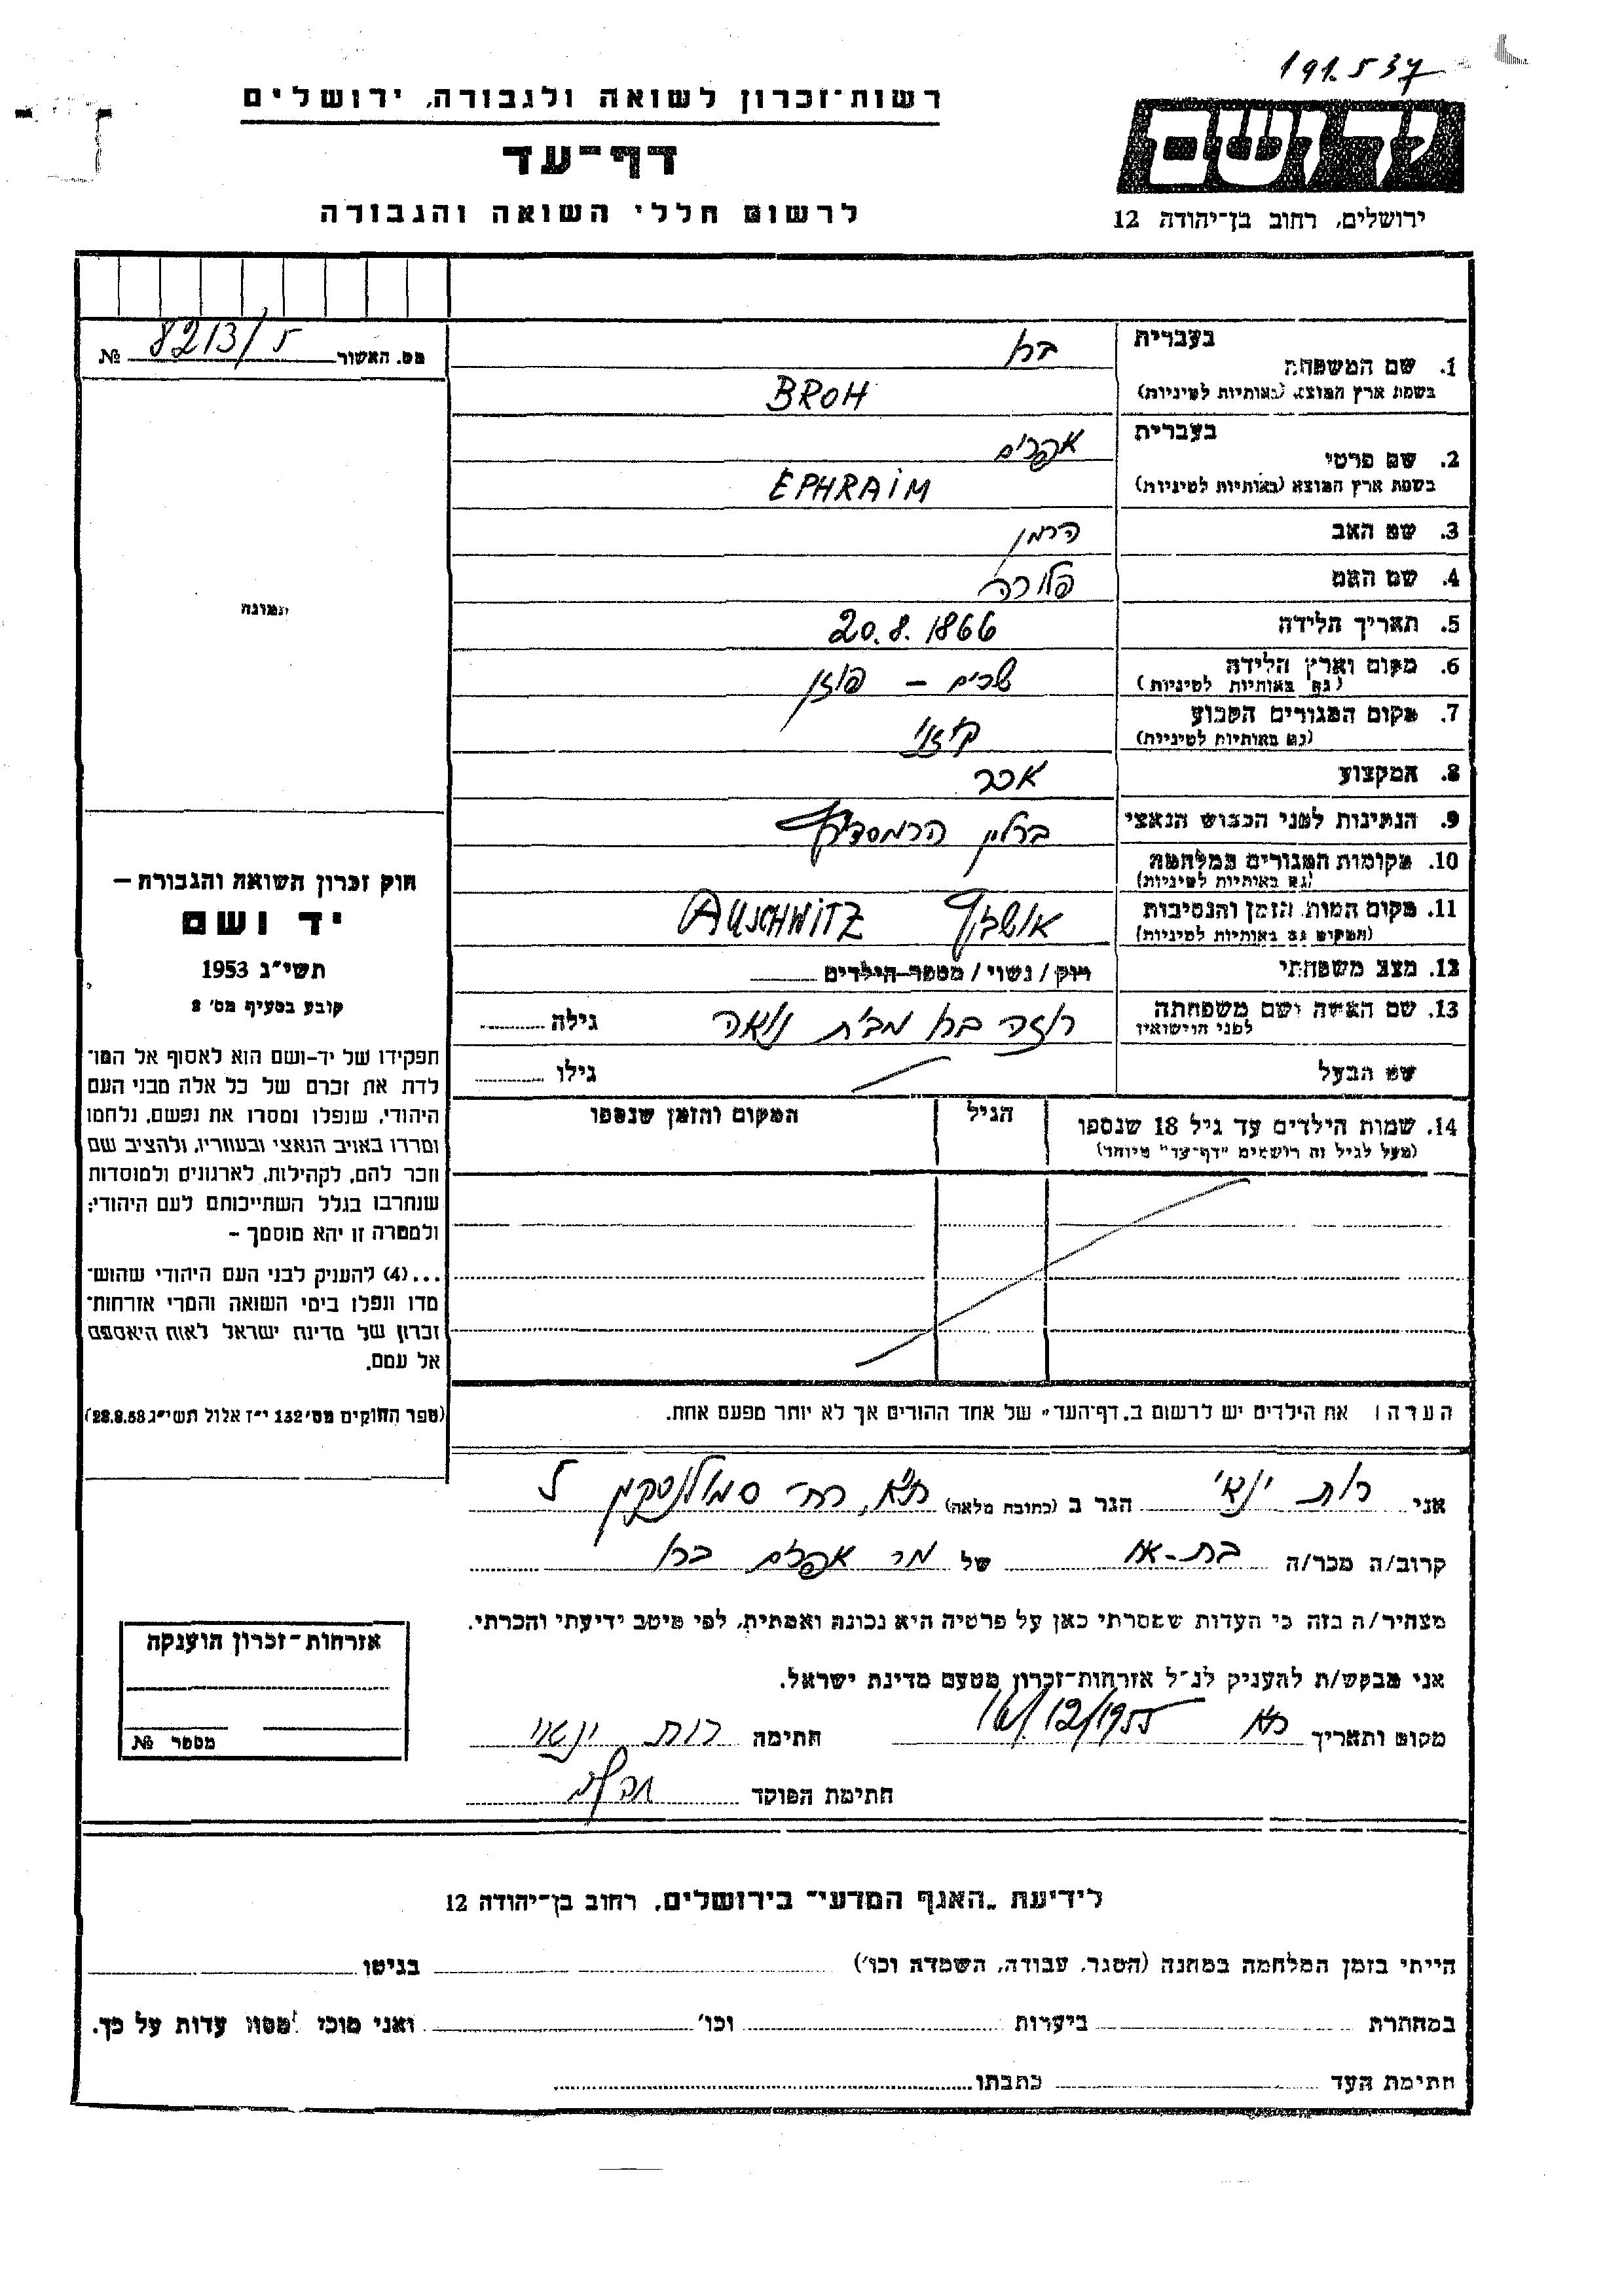 191.537
רשות־זכרון לשואה ולגבורה, ירושלים
דף־עד
לרשום חללי השואה והגבורה
יד ושם
ירושלים, רחוב בן־יהודה 12
מס. האשור № 8213/5
בעברית
1. שם המשפחה ברו
בשפת ארץ המוצא (באותיות לטיניות) BROH
בעברית
2. שם פרטי אפרים
בשפת ארץ המוצא (באותיות לטיניות) EPHRAIM
3. שם האב הרמן
4. שם האם פלורה
5. תאריך הלידה 20.8.1866
6. מקום וארץ הלידה שרים - פוזן
(גם באותיות לטיניות)
7. מקום המגורים הקבוע
(גם באותיות לטיניות)
8. המקצוע
9. הנתינות לפני הכבוש הנאצי ברלין
10. מקומות המגורים במלחמה
(גם באותיות לטיניות)
11. מקום המות, הזמן והנסיבות אושויץ AUSCHWITZ
(המקום גם באותיות לטיניות)
12. מצב משפחתי רווק / נשוי / מספר הילדים
13. שם האשה ושם משפחתה רוזה ברו מבית גילה
לפני הנישואין
שם הבעל גילו
14. שמות הילדים עד גיל 18 שנספו הגיל המקום והזמן שנספו
(מעל לגיל זה רושמים "דף־עד" מיוחד)
הערה: את הילדים יש לרשום ב„דף־העד" של אחד ההורים אך לא יותר מפעם אחת.
תמונה
חוק זכרון השואה והגבורה –
יד ושם
תשי"ג 1953
קובע בסעיף מס' 2
תפקידו של יד-ושם הוא לאסוף אל המו־
לדת את זכרם של כל אלה מבני העם
היהודי, שנפלו ומסרו את נפשם, נלחמו
ומרדו באויב הנאצי ובעוזריו, ולהציב שם
וזכר להם, לקהילות, לארגונים ולמוסדות
שנחרבו בגלל השתייכותם לעם היהודי;
ולמטרה זו יהא מוסמך –
...(4) להעניק לבני העם היהודי שהוש־
מדו ונפלו בימי השואה והמרי אזרחות־
זכרון של מדינת ישראל לאות היאספם
אל עמם.
(ספר החוקים מס' 132 י"ז אלול תשי"ג 28.8.53)
אני רות הגר ב (כתובת מלאה) ת"א, רח' סמולנסקין
קרוב/ה מכר/ה של מר אפרים ברו
מצהיר/ה בזה כי העדות שמסרתי כאן על פרטיה היא נכונה ואמתית, לפי מיטב ידיעתי והכרתי.
אני מבקש/ת להעניק לנ"ל אזרחות־זכרון מטעם מדינת ישראל.
מקום ותאריך ת"א 16/12/1955 חתימה רות
חתימת הפוקד
אזרחות־זכרון הוענקה
מספר №
לידיעת „האגף המדעי" בירושלים, רחוב בן־יהודה 12
הייתי בזמן המלחמה במחנה (הסגר, עבודה, השמדה וכו') בגיטו
במחתרת ביערות וכו' ואני מוכן למסור עדות על כך.
חתימת העד כתבתו